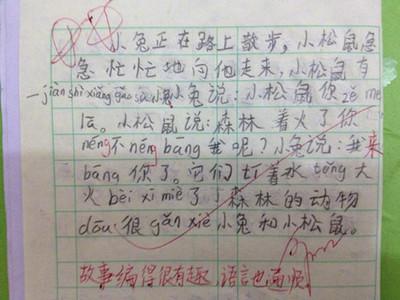 小兔正在路上散步，小松鼠急
急忙忙地向他走来，小松鼠有
一jiàn shì xiǎng gào sù 小兔说：小松鼠你zě me
la。小松鼠说：森林着火了你
néng不néng bāng我呢？小兔说：我来
bāng你了。它们打着水tǒng大
火bèi xī miè了。森林的动物
dōu很gǎn xiè小兔和小松鼠。
故事编得很有趣 语言也通顺